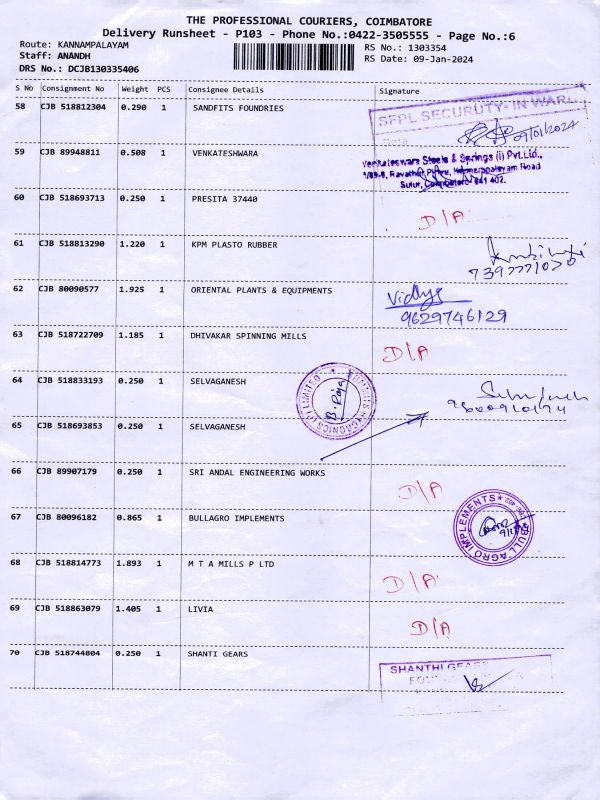 THE PROFESSIONAL COURIERS, COIMBATORE
Delivery Runsheet - P103 - Phone No.:0422-3505555 - Page No.:6
Route: KANNAMPALAYAM
RS No.: 1303354
Staff: ANANDH
RS Date: 09-Jan-2024
DRS No.: DCJB130335406
S No Consignment No Weight PCS Consignee Details Signature
58 CJB 518812304 0.290 1 SANDFITS FOUNDRIES
SFPL SECURUTY-IN WAR
09/01/2024
59 CJB 89948811 0.508 1 VENKATESHWARA
Venkateswara Steels & Springs (I) Pvt.Ltd.,
Sulur, Coimbatore 641 402.
60 CJB 518693713 0.250 1 PRESITA 37440
D/A
61 CJB 518813290 1.220 1 KPM PLASTO RUBBER
62 CJB 80090577 1.925 1 ORIENTAL PLANTS & EQUIPMENTS
Vidhya
9629746129
63 CJB 518722709 1.185 1 DHIVAKAR SPINNING MILLS
D/A
64 CJB 518833193 0.250 1 SELVAGANESH
B. Raja
65 CJB 518693853 0.250 1 SELVAGANESH
66 CJB 89907179 0.250 1 SRI ANDAL ENGINEERING WORKS
D/A
67 CJB 80096182 0.865 1 BULLAGRO IMPLEMENTS
BULL AGRO IMPLEMENTS
68 CJB 518814773 1.893 1 M T A MILLS P LTD
D/A
69 CJB 518863079 1.405 1 LIVIA
D/A
70 CJB 518744804 0.250 1 SHANTI GEARS
SHANTHI GEARS